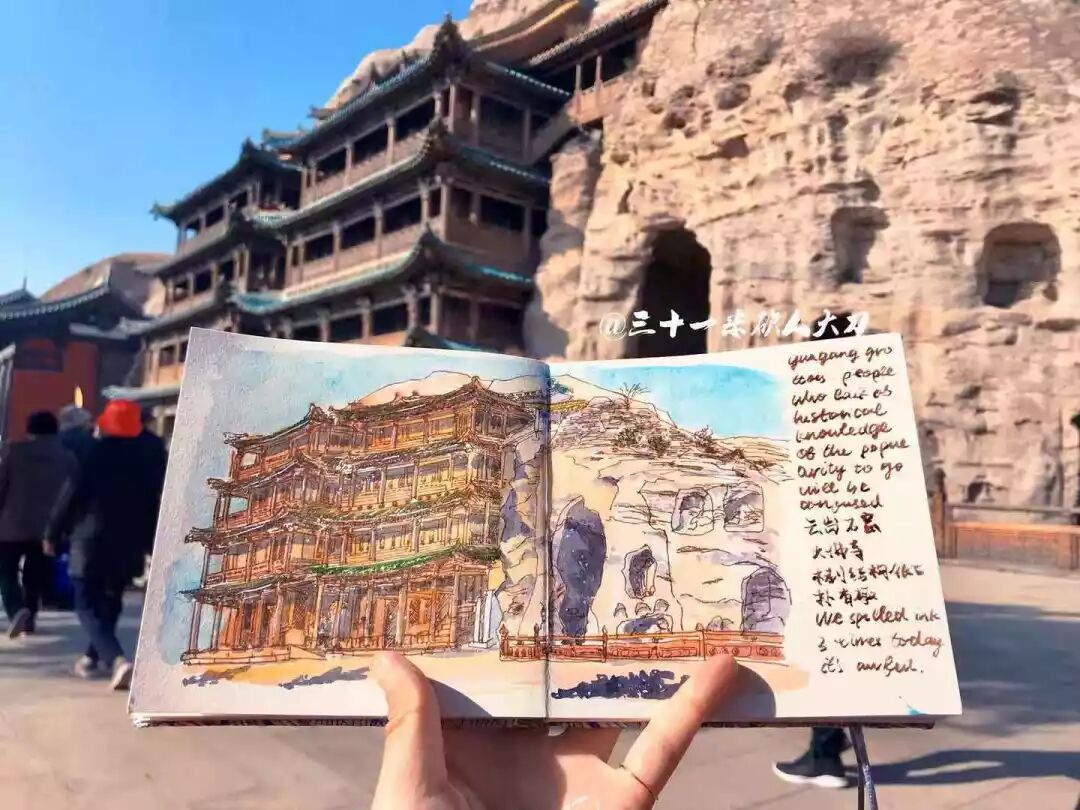 @三十一柒你人大刀
yungang gro
ttoes people
who lack of
historical
knowledge
of the popul
arity to go
will be
confused
云岗石窟
大佛寺
We spilled ink
3 times today
it's awful.